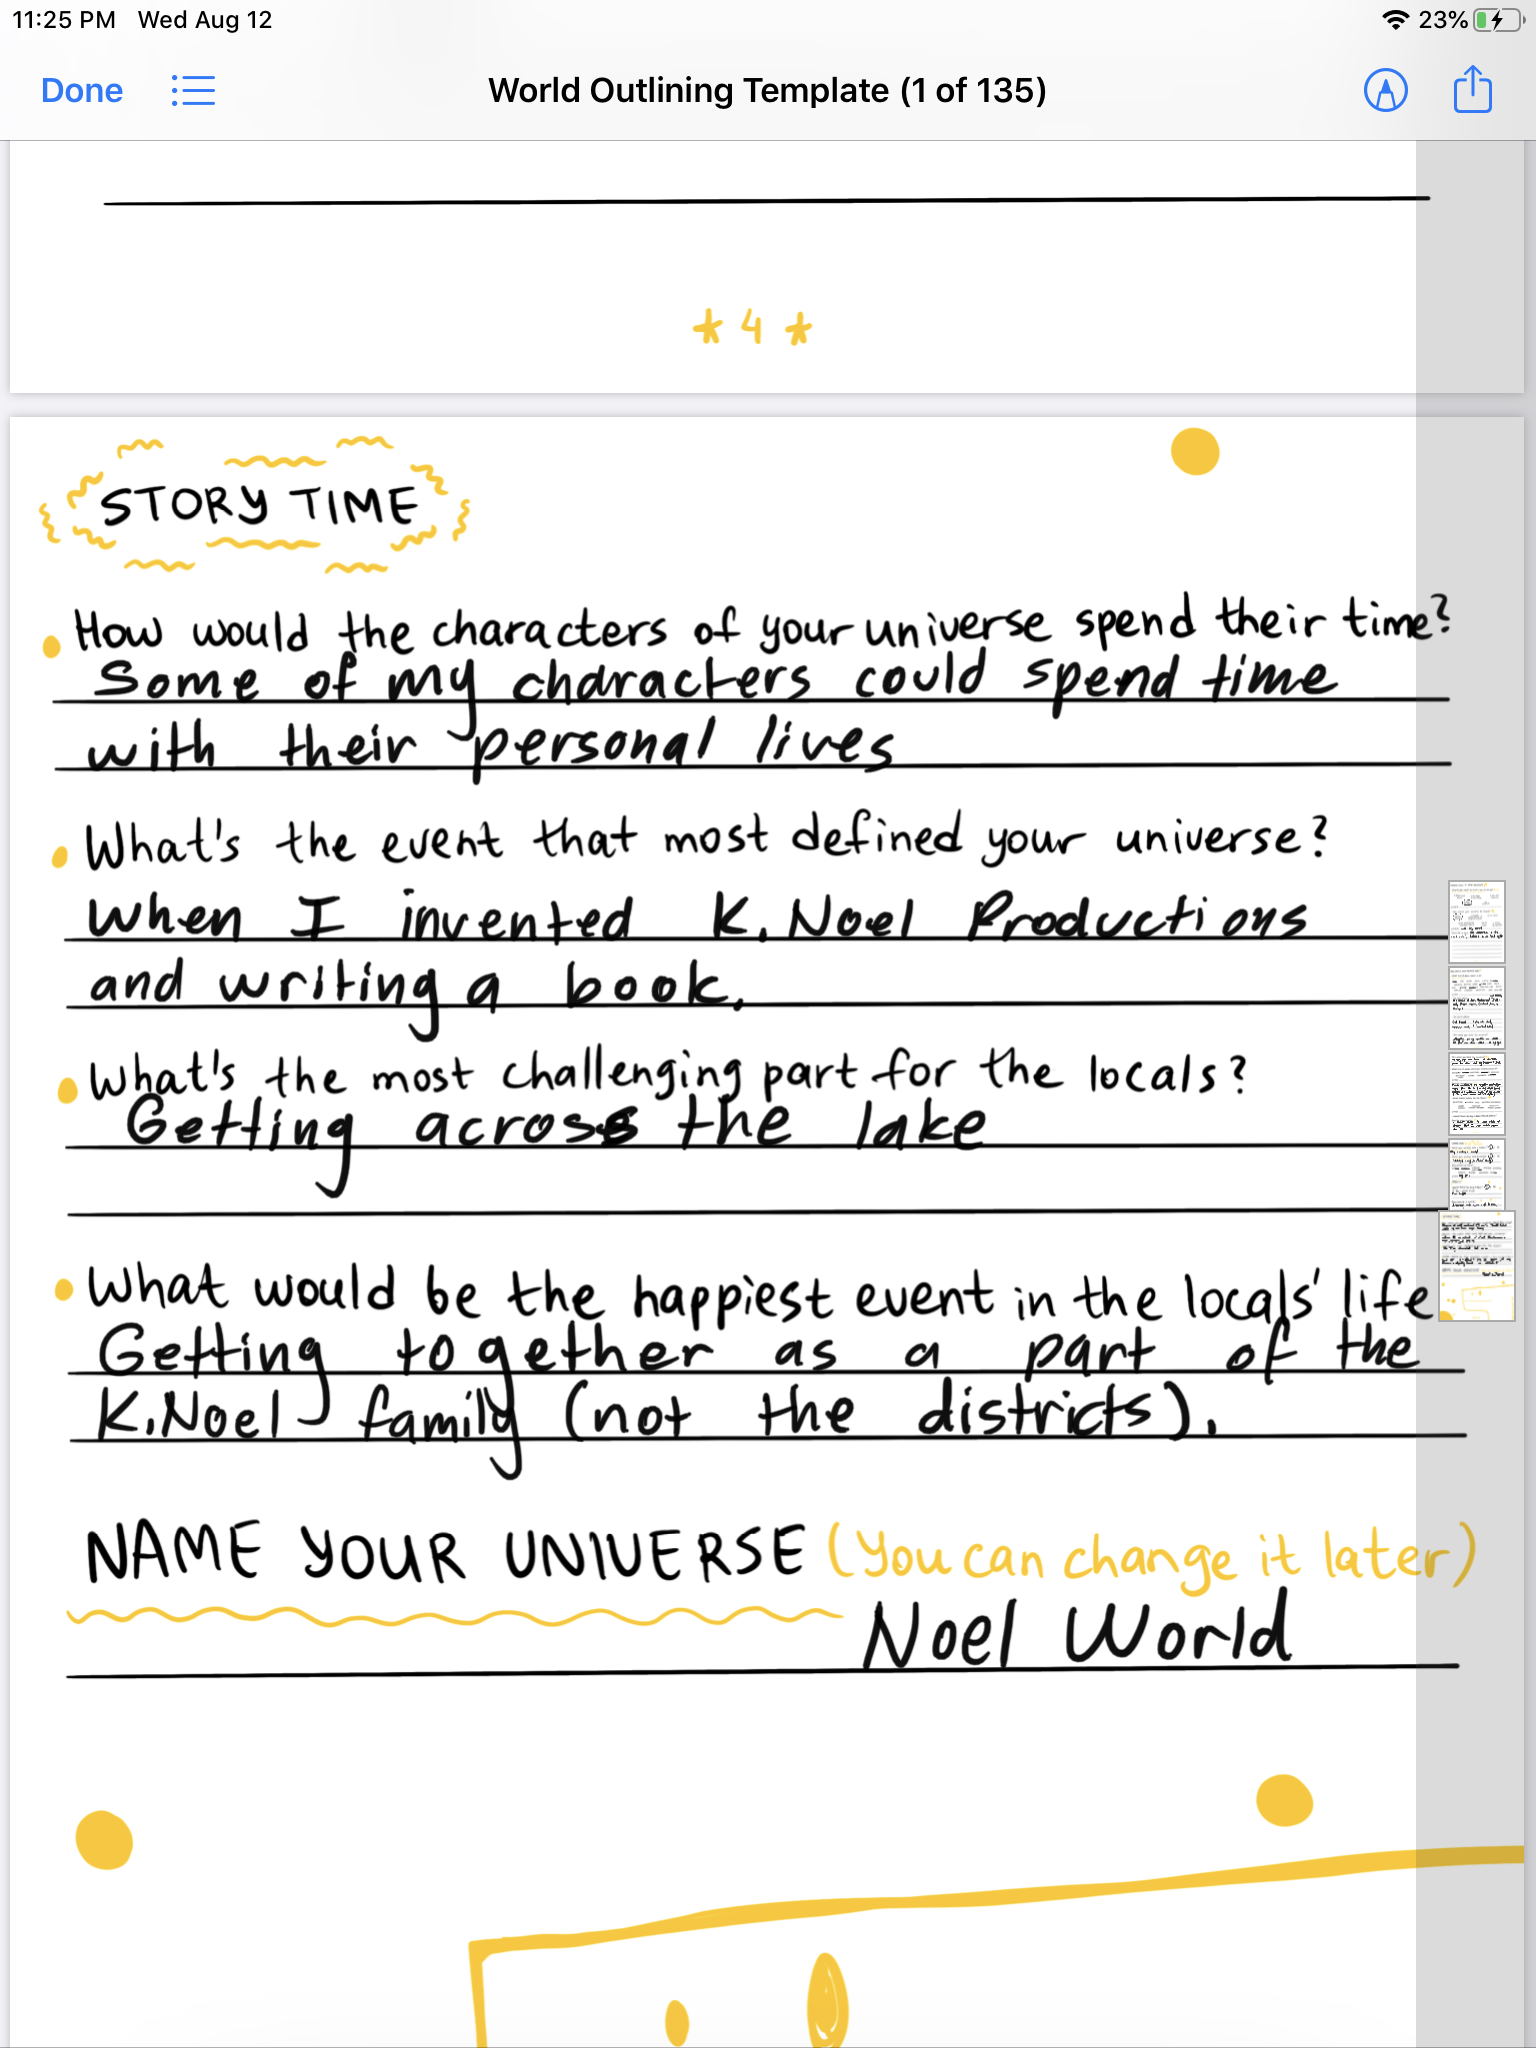 11:25 PM Wed Aug 12 23%
Done World Outlining Template (1 of 135)
* 4 *
STORY TIME
How would the characters of your universe spend their time?
Some of my characters could spend time
with their personal lives
What's the event that most defined your universe?
When I invented K. Noel Productions
and writing a book.
What's the most challenging part for the locals?
Getting across the lake
What would be the happiest event in the locals' life
Getting together as a part of the
K. Noel family (not the districts).
NAME YOUR UNIVERSE (You can change it later)
Noel World